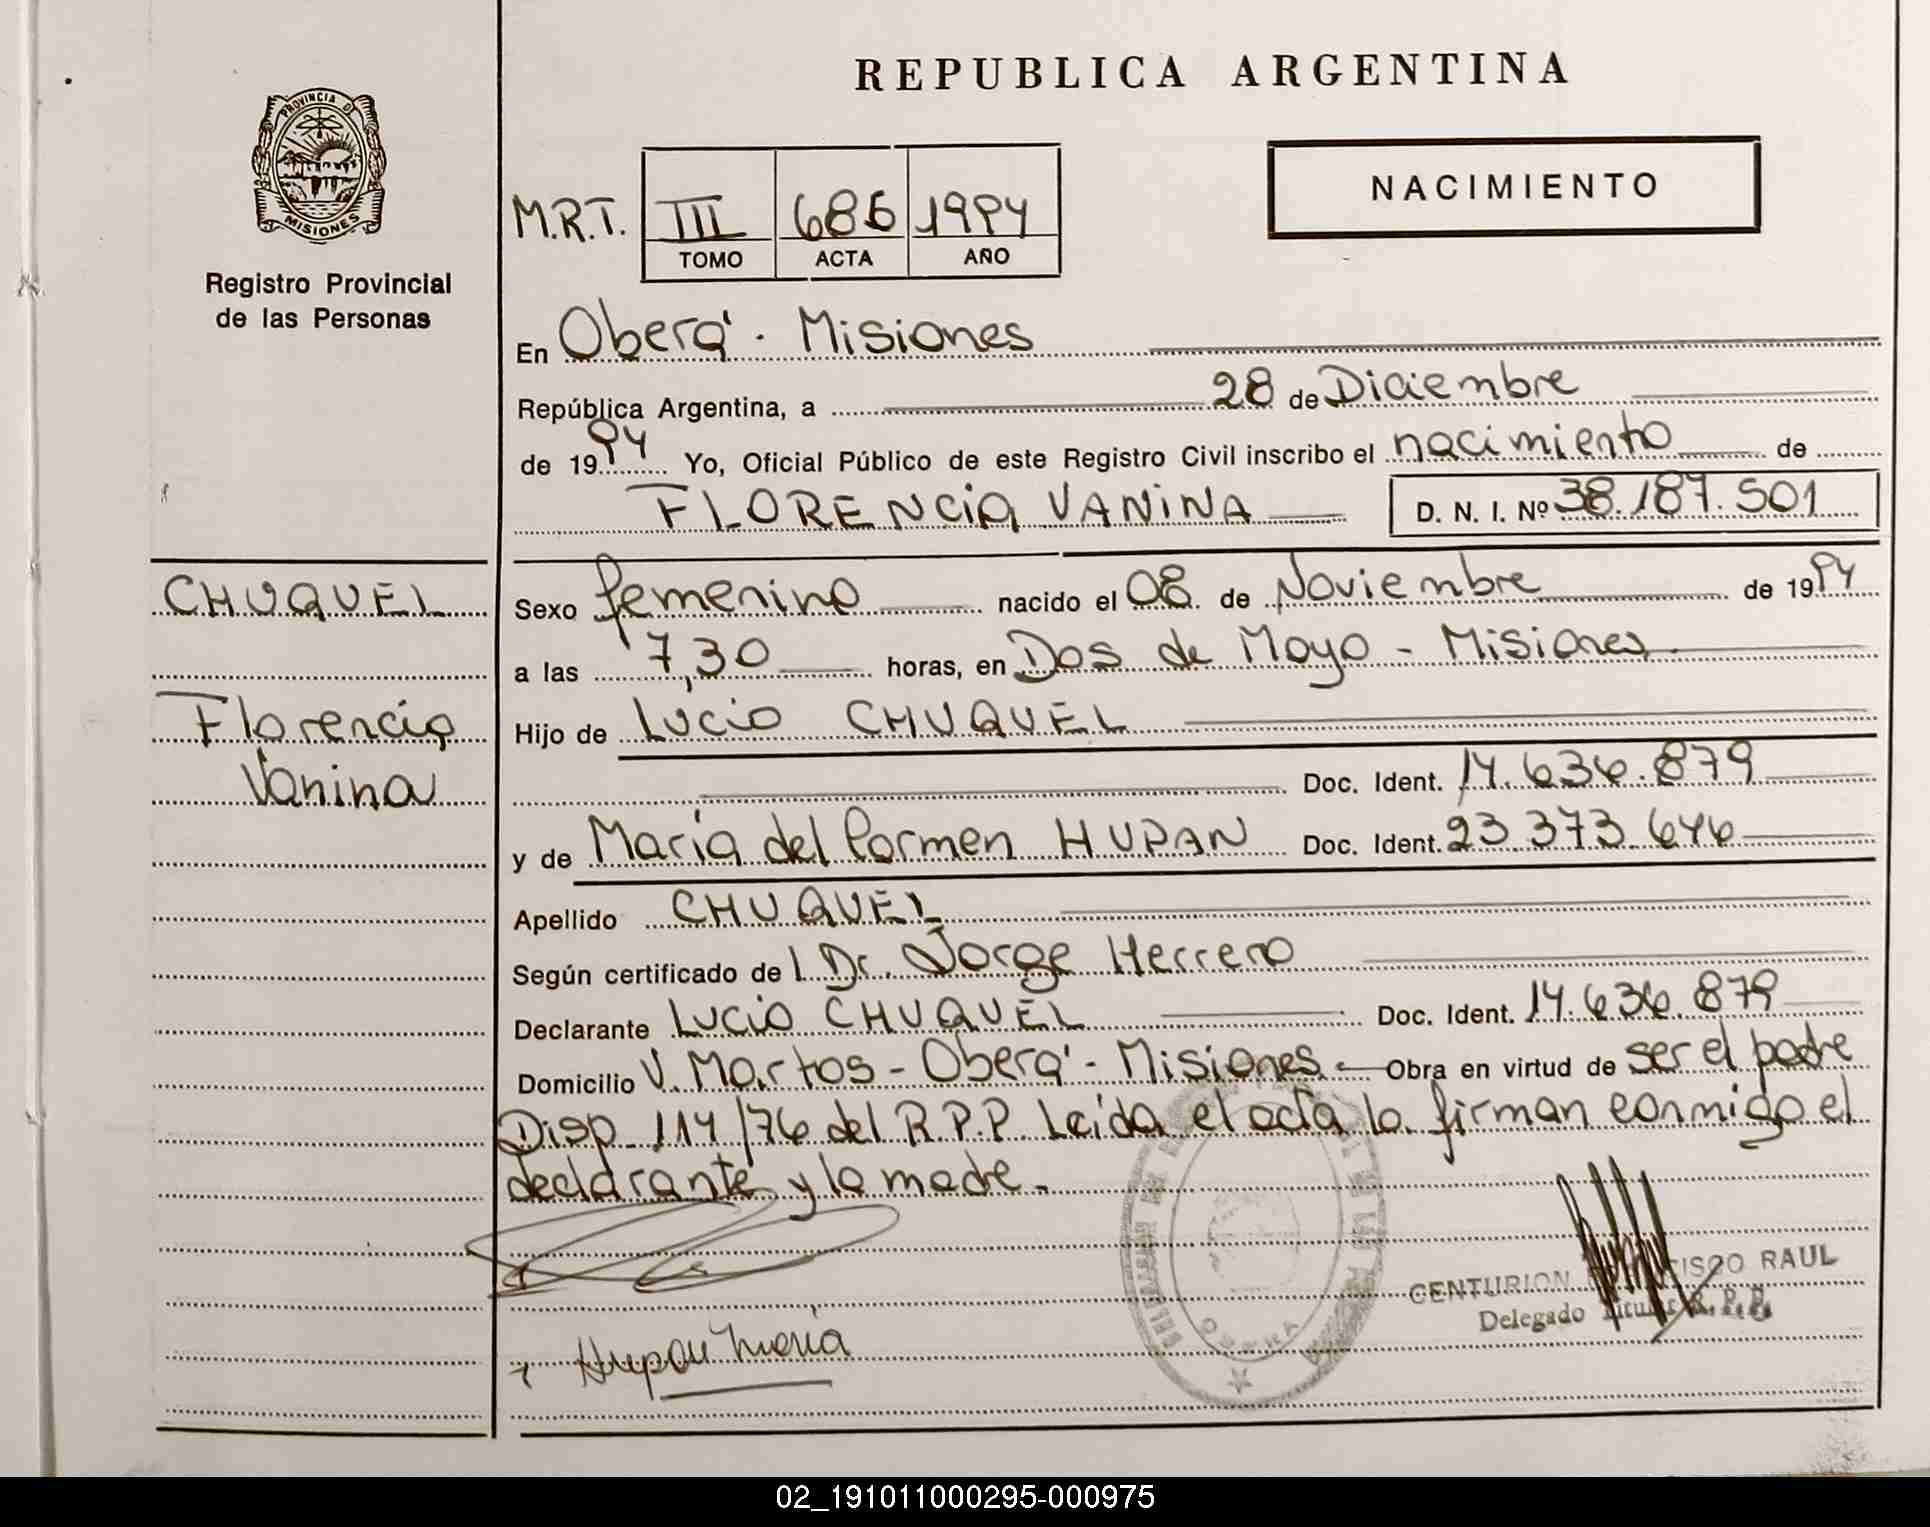 REPUBLICA ARGENTINA
PROVINCIA DE
MISIONES
Registro Provincial
de las Personas
NACIMIENTO
M.R.T. III 686 1994
TOMO ACTA AÑO
En Oberá - Misiones
República Argentina, a 28 de Diciembre
de 1994 Yo, Oficial Público de este Registro Civil inscribo el nacimiento de
FLORENCIA VANINA D. N. I. Nº 38.187.501
CHUQUEL
Florencia
Vanina
Sexo femenino nacido el 08 de Noviembre de 1994
a las 7,30 horas, en Dos de Mayo - Misiones
Hijo de Lucio CHUQUEL
Doc. Ident. 14.636.879
y de María del Carmen HUPAN Doc. Ident. 23.373.646
Apellido CHUQUEL
Según certificado de l Dr. Jorge Herrero
Declarante Lucio CHUQUEL Doc. Ident. 14.636.879
Domicilio V. Martos - Oberá - Misiones - Obra en virtud de ser el padre
Disp 114/76 del R.P.P. Leída el acta la firman conmigo el
declarante y la madre.
CENTURION RAUL
Delegado Titular R.P.P.
Hupan Maria
OBERA
02_191011000295-000975